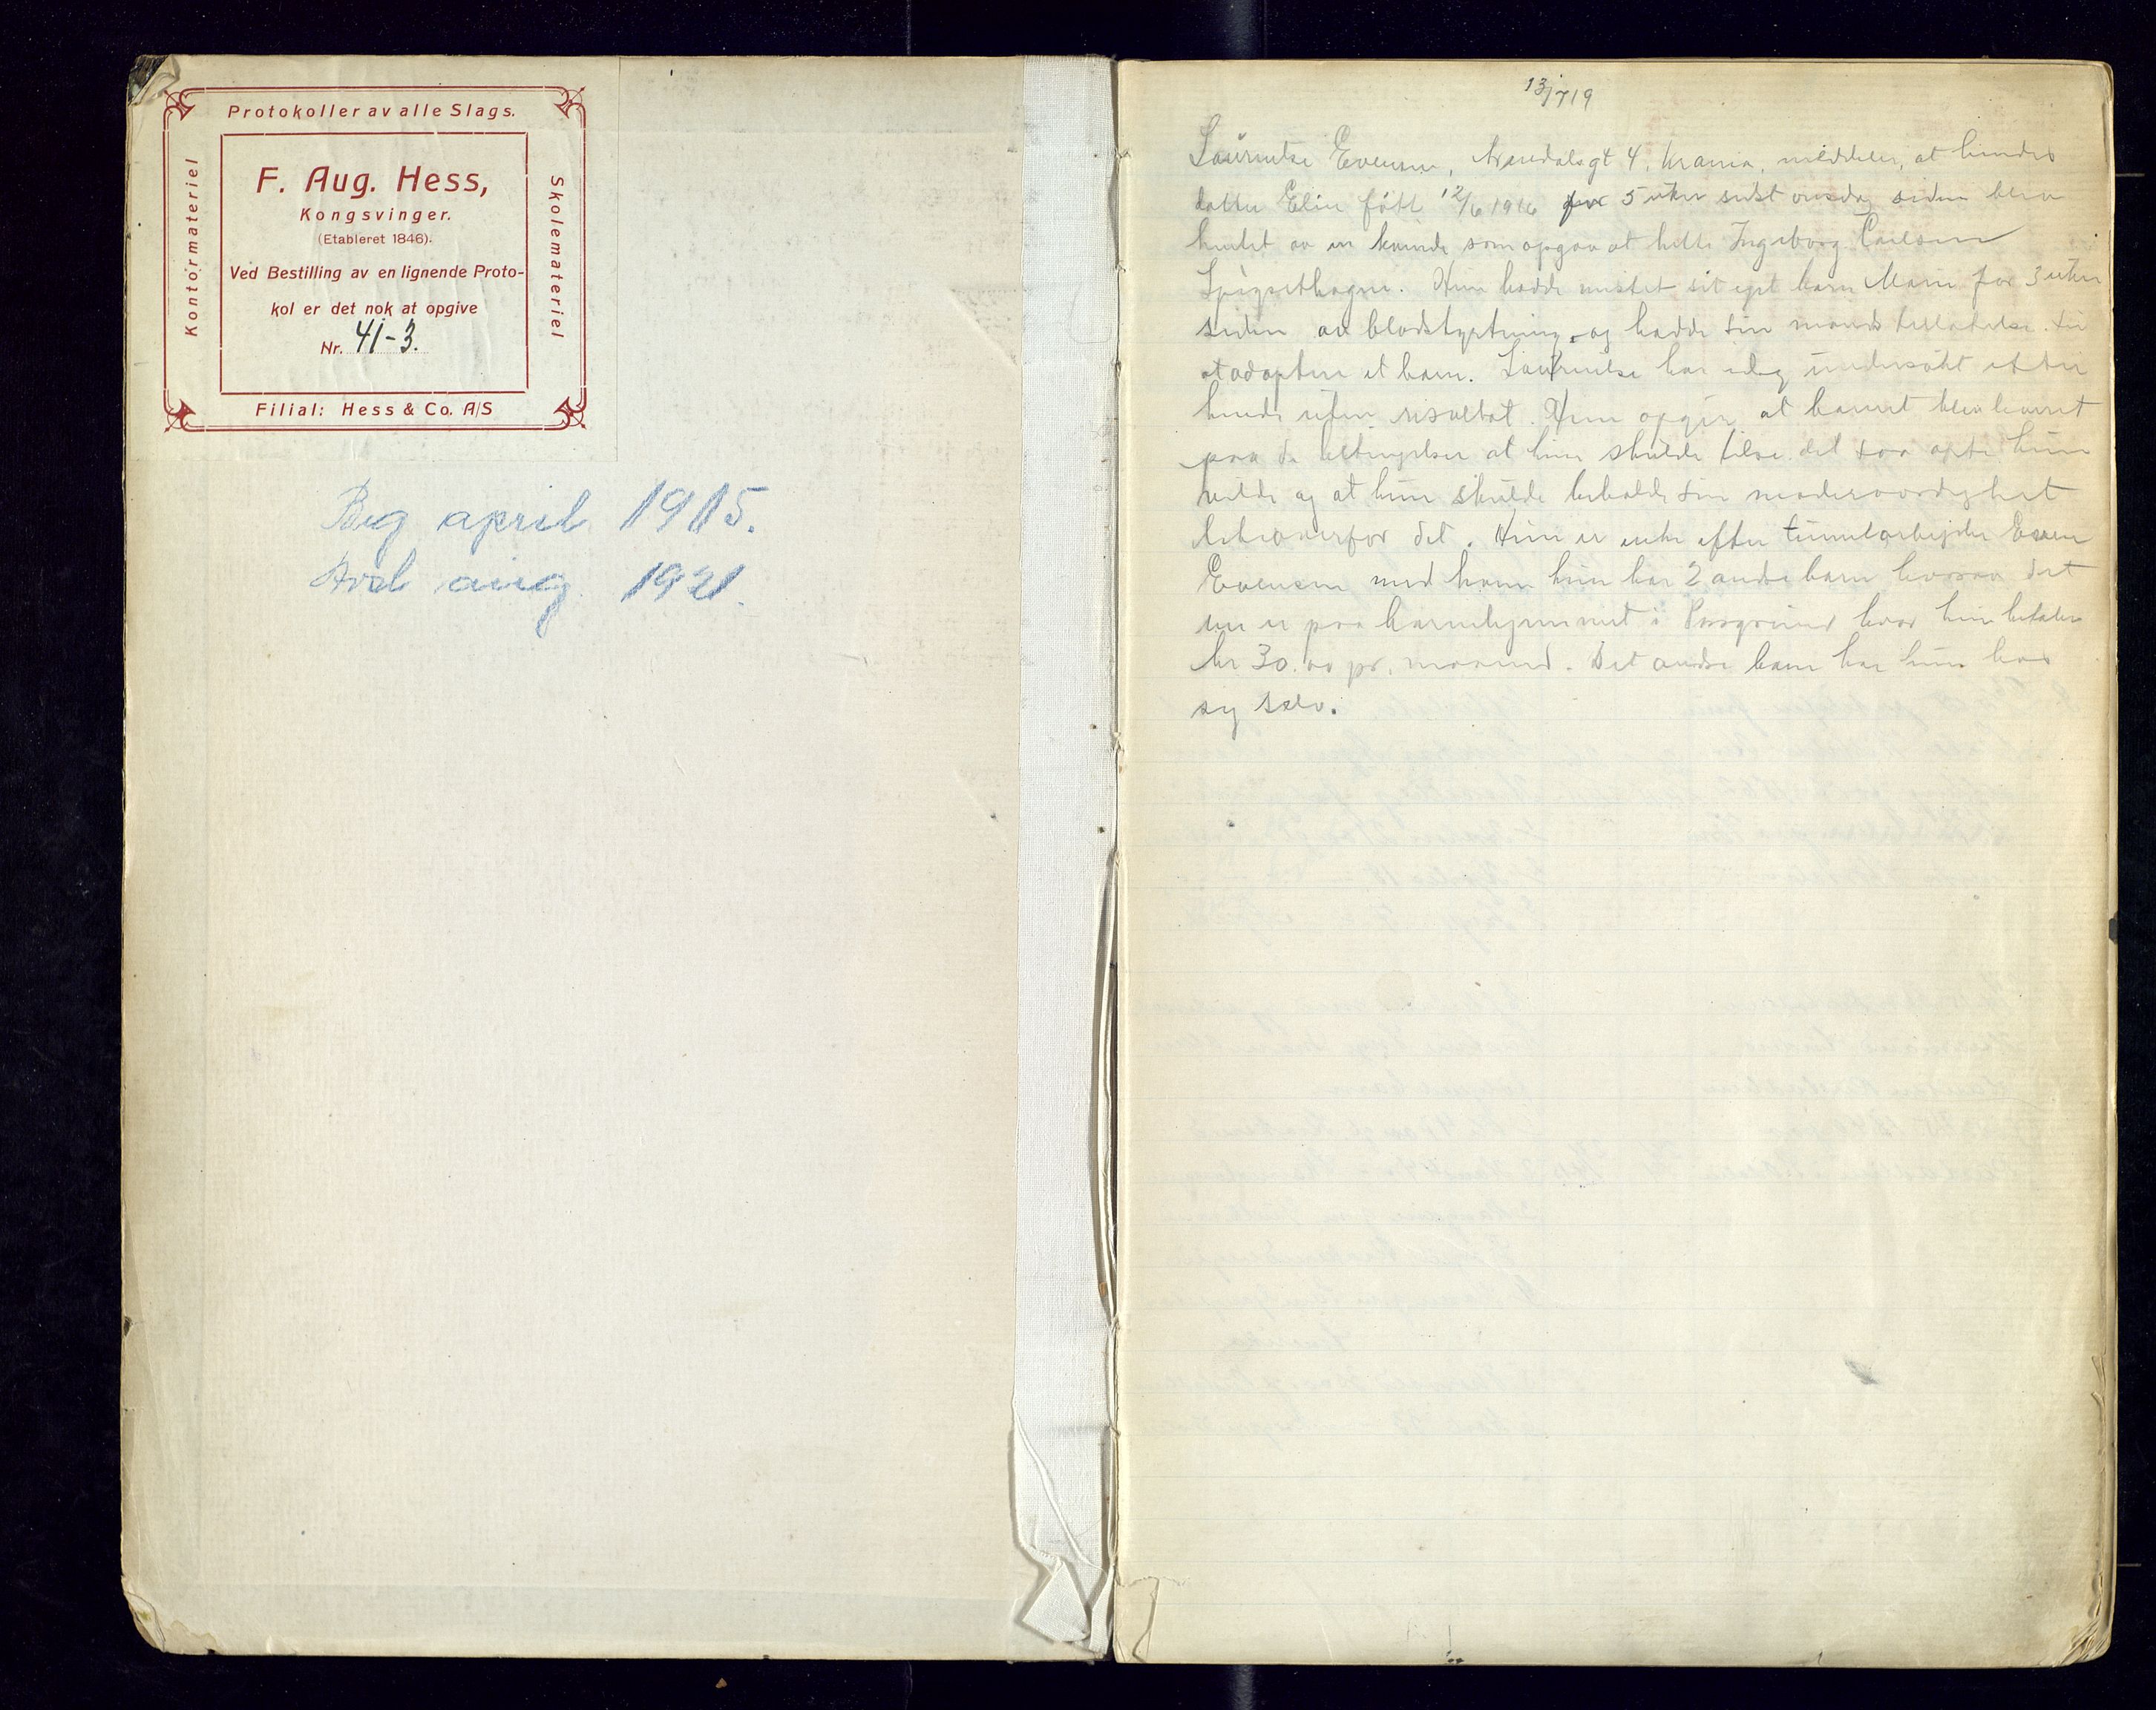 Protokoller av alle Slags.
Kontormateriel
Skolemateriel
F. Aug. Hess,
Kongsvinger.
(Etableret 1846).
Ved Bestilling av en lignende Proto-
kol er det nok at opgive
Nr. 41-3.
Filial: Hess & Co. A/S
Beg april 1915.
Avsl aug 1921.
13/7 19
Laurentse Evensen, gt 4, Krania, meddeler, at hendes
datter Elin født 12/6 1916 for 5 uker sidst onsdag siden blev
hentet av en kvinde som opgav at hette Ingeborg Carlsen
Hun hadde mistet sit eget barn Marie for 3 uker
siden av blodstyrtning og hadde sin mands tilladelse til
at adoptere et barn. Laurentse har idag undersøkt efter
hende uten resultat. Hun opgir at barnet blev levert
paa de betingelser at hun skulde faa se det saa ofte hun
vilde og at hun skulde beholde sin
overfor det. Hun er enke efter tunnelarbeider
Evensen med hvem hun har 2 andre barn hvorav det
ene er paa barnehjemmet i Porsgrund hvor hun betaler
kr 30.00 pr. maaned. Det andre barn har hun hos
sig selv.